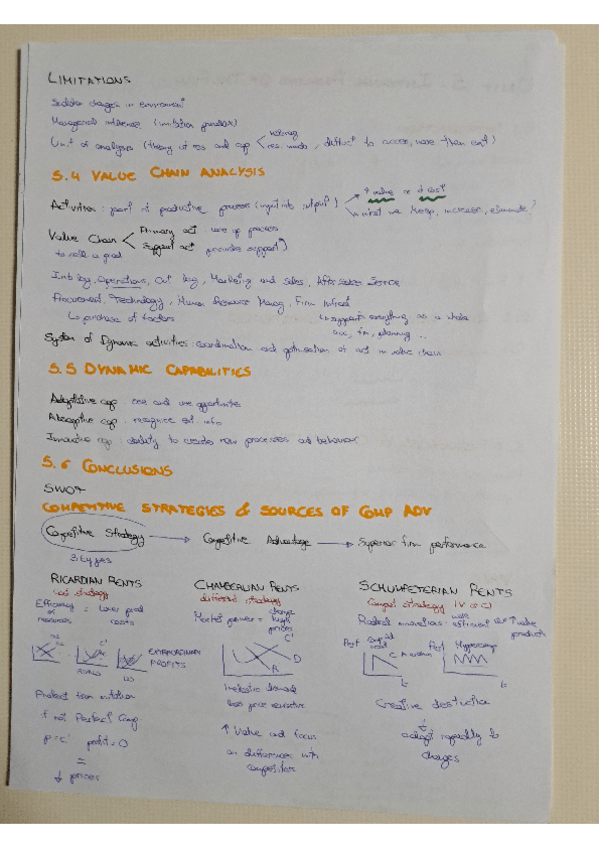 LIMITATIONS
Sudden changes in environment
Managerial inference (imitation
Unit of analysis (theory of res and cap
res. made, difficult to access, more than cont)
5.4 VALUE CHAIN ANALYSIS
Activities: part of productive process (input into output)
↑ value or ↓ cost
what we keep, increase, eliminate?
Value Chain
Primary act
Support act provides support
to sell a good
Inb log, Operations, Out log, Marketing and Sales, After Sales Service
Procurement, Technology, Human Resource Manag, Firm Infrast
↳ purchase of factors
↳ support everything as a whole
acc, fin, planning ...
System of Dynamic activities: coordination and optimisation of act in value chain
5.5 DYNAMIC CAPABILITIES
Adaptative cap: and use opportunities
Absorptive cap: recognize ext. info
Innovative cap: ability to create new processes and behavior
5.6 CONCLUSIONS
SWOT
COMPETITIVE STRATEGIES & SOURCES OF COMP ADV
Competitive Strategy → Competitive Advantage → Superior firm performance
3 types
RICARDIAN RENTS
Cost strategy
Efficiency of resources = Lower prod costs
EXTRAORDINARY PROFITS
Protect from imitation
if not Perfect Comp
p=c' profit=0
=
↓ prices
CHAMBERLIAN RENTS
different strategy
Market power = charge high prices
C'
D
R
Inelastic demand
less price sensitive
↑ Value and focus
on differences with
competitor
SCHUMPETERIAN RENTS
Radical innovations: more efficient or ↑ value products
Perf
Perf
t
t
Creative destruction
↓
adapt rapidly to
changes